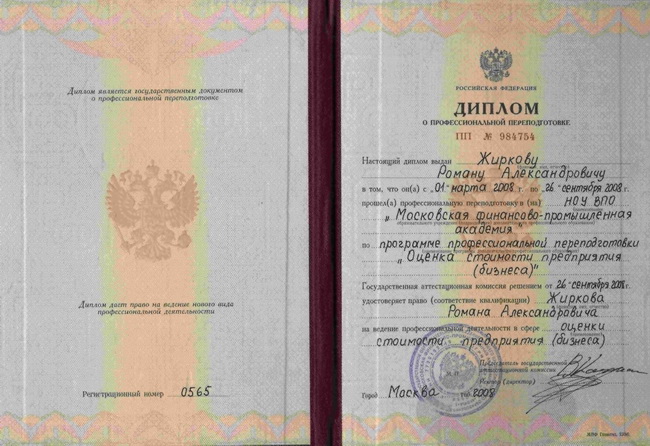 Диплом является государственным документом
о профессиональной переподготовке
Диплом дает право на ведение нового вида
профессиональной деятельности
Регистрационный номер 0565
РОССИЙСКАЯ ФЕДЕРАЦИЯ
ДИПЛОМ
О ПРОФЕССИОНАЛЬНОЙ ПЕРЕПОДГОТОВКЕ
ПП № 984754
Настоящий диплом выдан Жиркову
Роману Александровичу
в том, что он(а) с „01" марта 2008 г. по „26" сентября 2008 г.
прошел(а) профессиональную переподготовку в (на) НОУ ВПО
„Московская финансово-промышленная
академия"
по программе профессиональной переподготовки
„Оценка стоимости предприятия
(бизнеса)"
Государственная аттестационная комиссия решением от „26" сентября 2008 г.
удостоверяет право (соответствие квалификации) Жиркова
Романа Александровича
на ведение профессиональной деятельности в сфере оценки
стоимости предприятия (бизнеса)
Председатель государственной
аттестационной комиссии
Ректор (директор)
Город Москва 2008